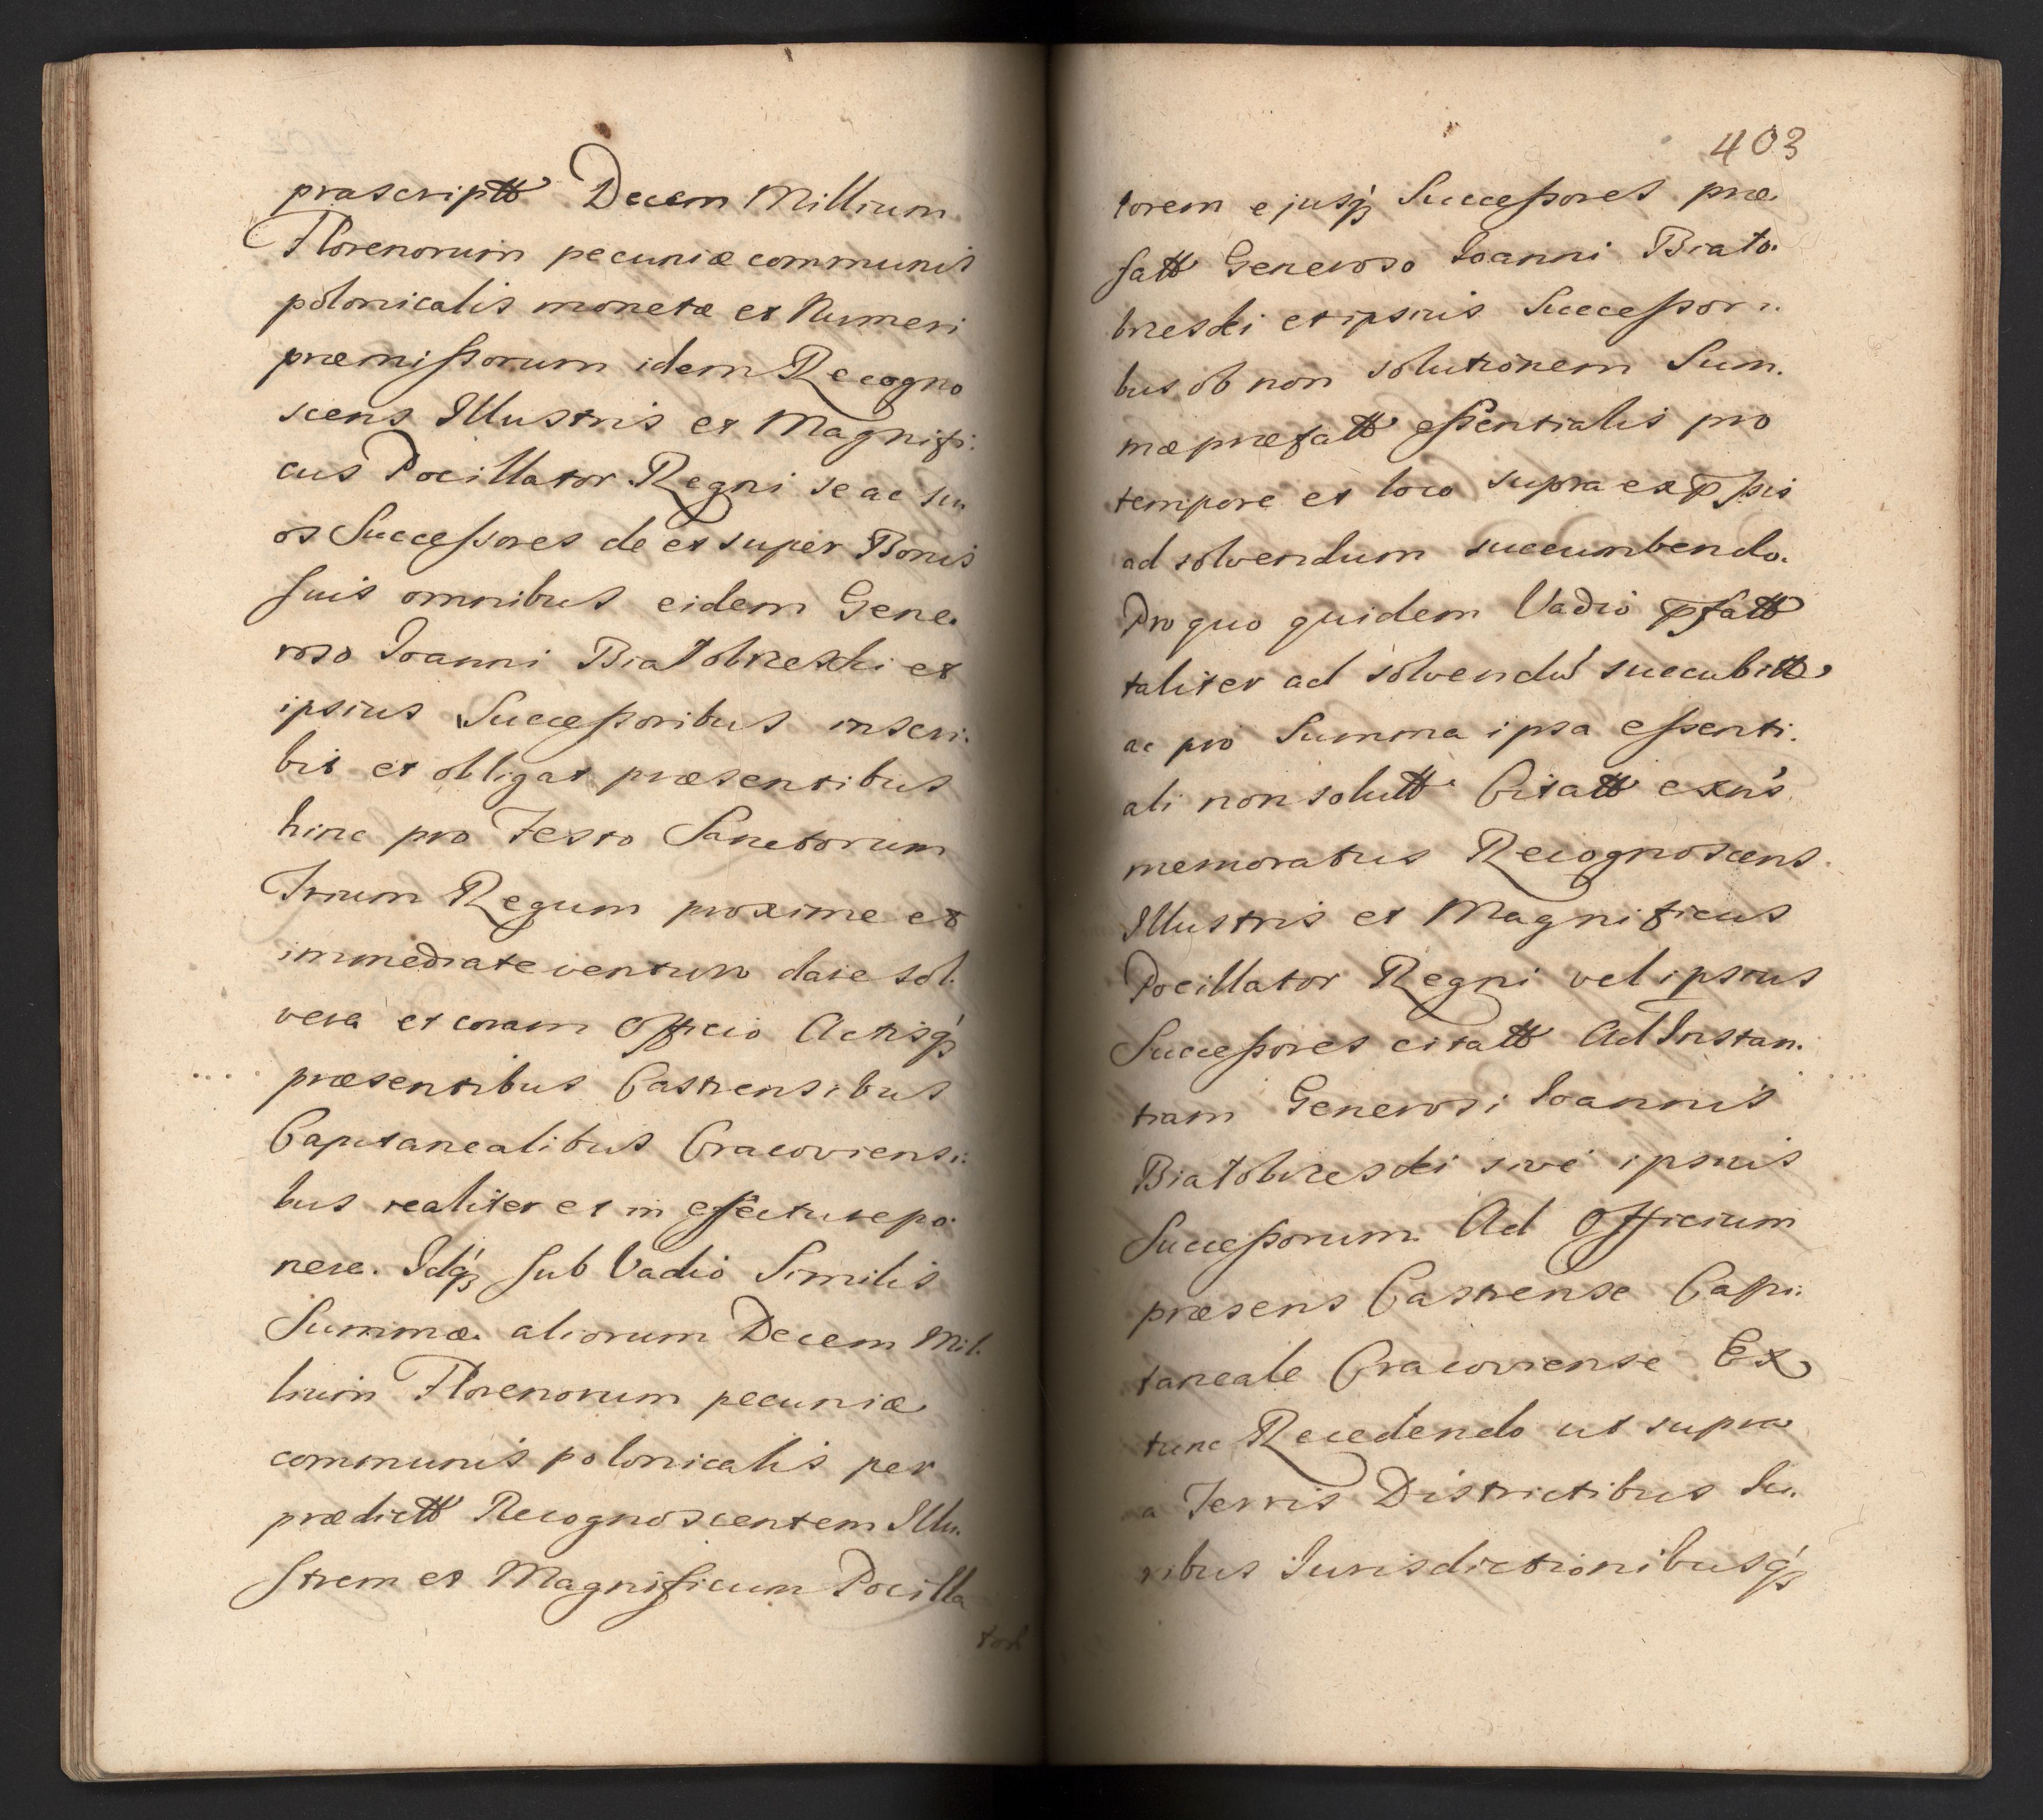 præscriptt Decem Millium
Florenorum pecuniæ communis
polonicalis monetæ et Numeri
præmissorum idem Recogno
scens Illustris et Magnifi:
cus Pocillator Regni se ac su
os Successores de et super Bonis
suis omnibus eidem Gene.
roso Ioanni Białobrzeski et
ipsius Successoribus inscri.
bit et obligat præsentibus
hinc pro Festo Sanctorum
Trium Regum proxime et
immediate venturo dare sol.
vere et coram Officio Actisq́
præsentibus Castrensibus
Capitanealibus Cracoviensi:
bus realiter et in effectu repo:
nere. Idq́ sub Vadio Similis
Summæ aliorum Decem Mil.
lium Florenorum pecuniæ
communis polonicalis per
prædictt Recognoscentem Illu.
strem et Magnificum Pocilla
tor
403
torem ejusq́ Successores præ.
fatt Generoso Ioanni Biało.
brzeski et ipsius Successori:
bus ob non solutionem Sum.
mæ præfatt essentialis pro
tempore et loco supra exp̃ssis
ad solvendum succumbendo.
Pro quo quidem Vadio p̃fatt
taliter ad solvendũ succubitt
ac pro Summa ipsa essenti.
ali non solutt Citatt exńs
memoratus Recognoscens
Illustris et Magnificus
Pocillator Regni vel ipsius
Successores citatt Ad Instan.
tiam Generosi Ioannis
Białobrzeski sive ipsius
Successorum Ad Officium
præsens Castrense Capi:
taneale Cracoviense Ex
tunc Recedendo ut supra
a Terris Districtibus Iu.
ribus Iurisdictionibusq́